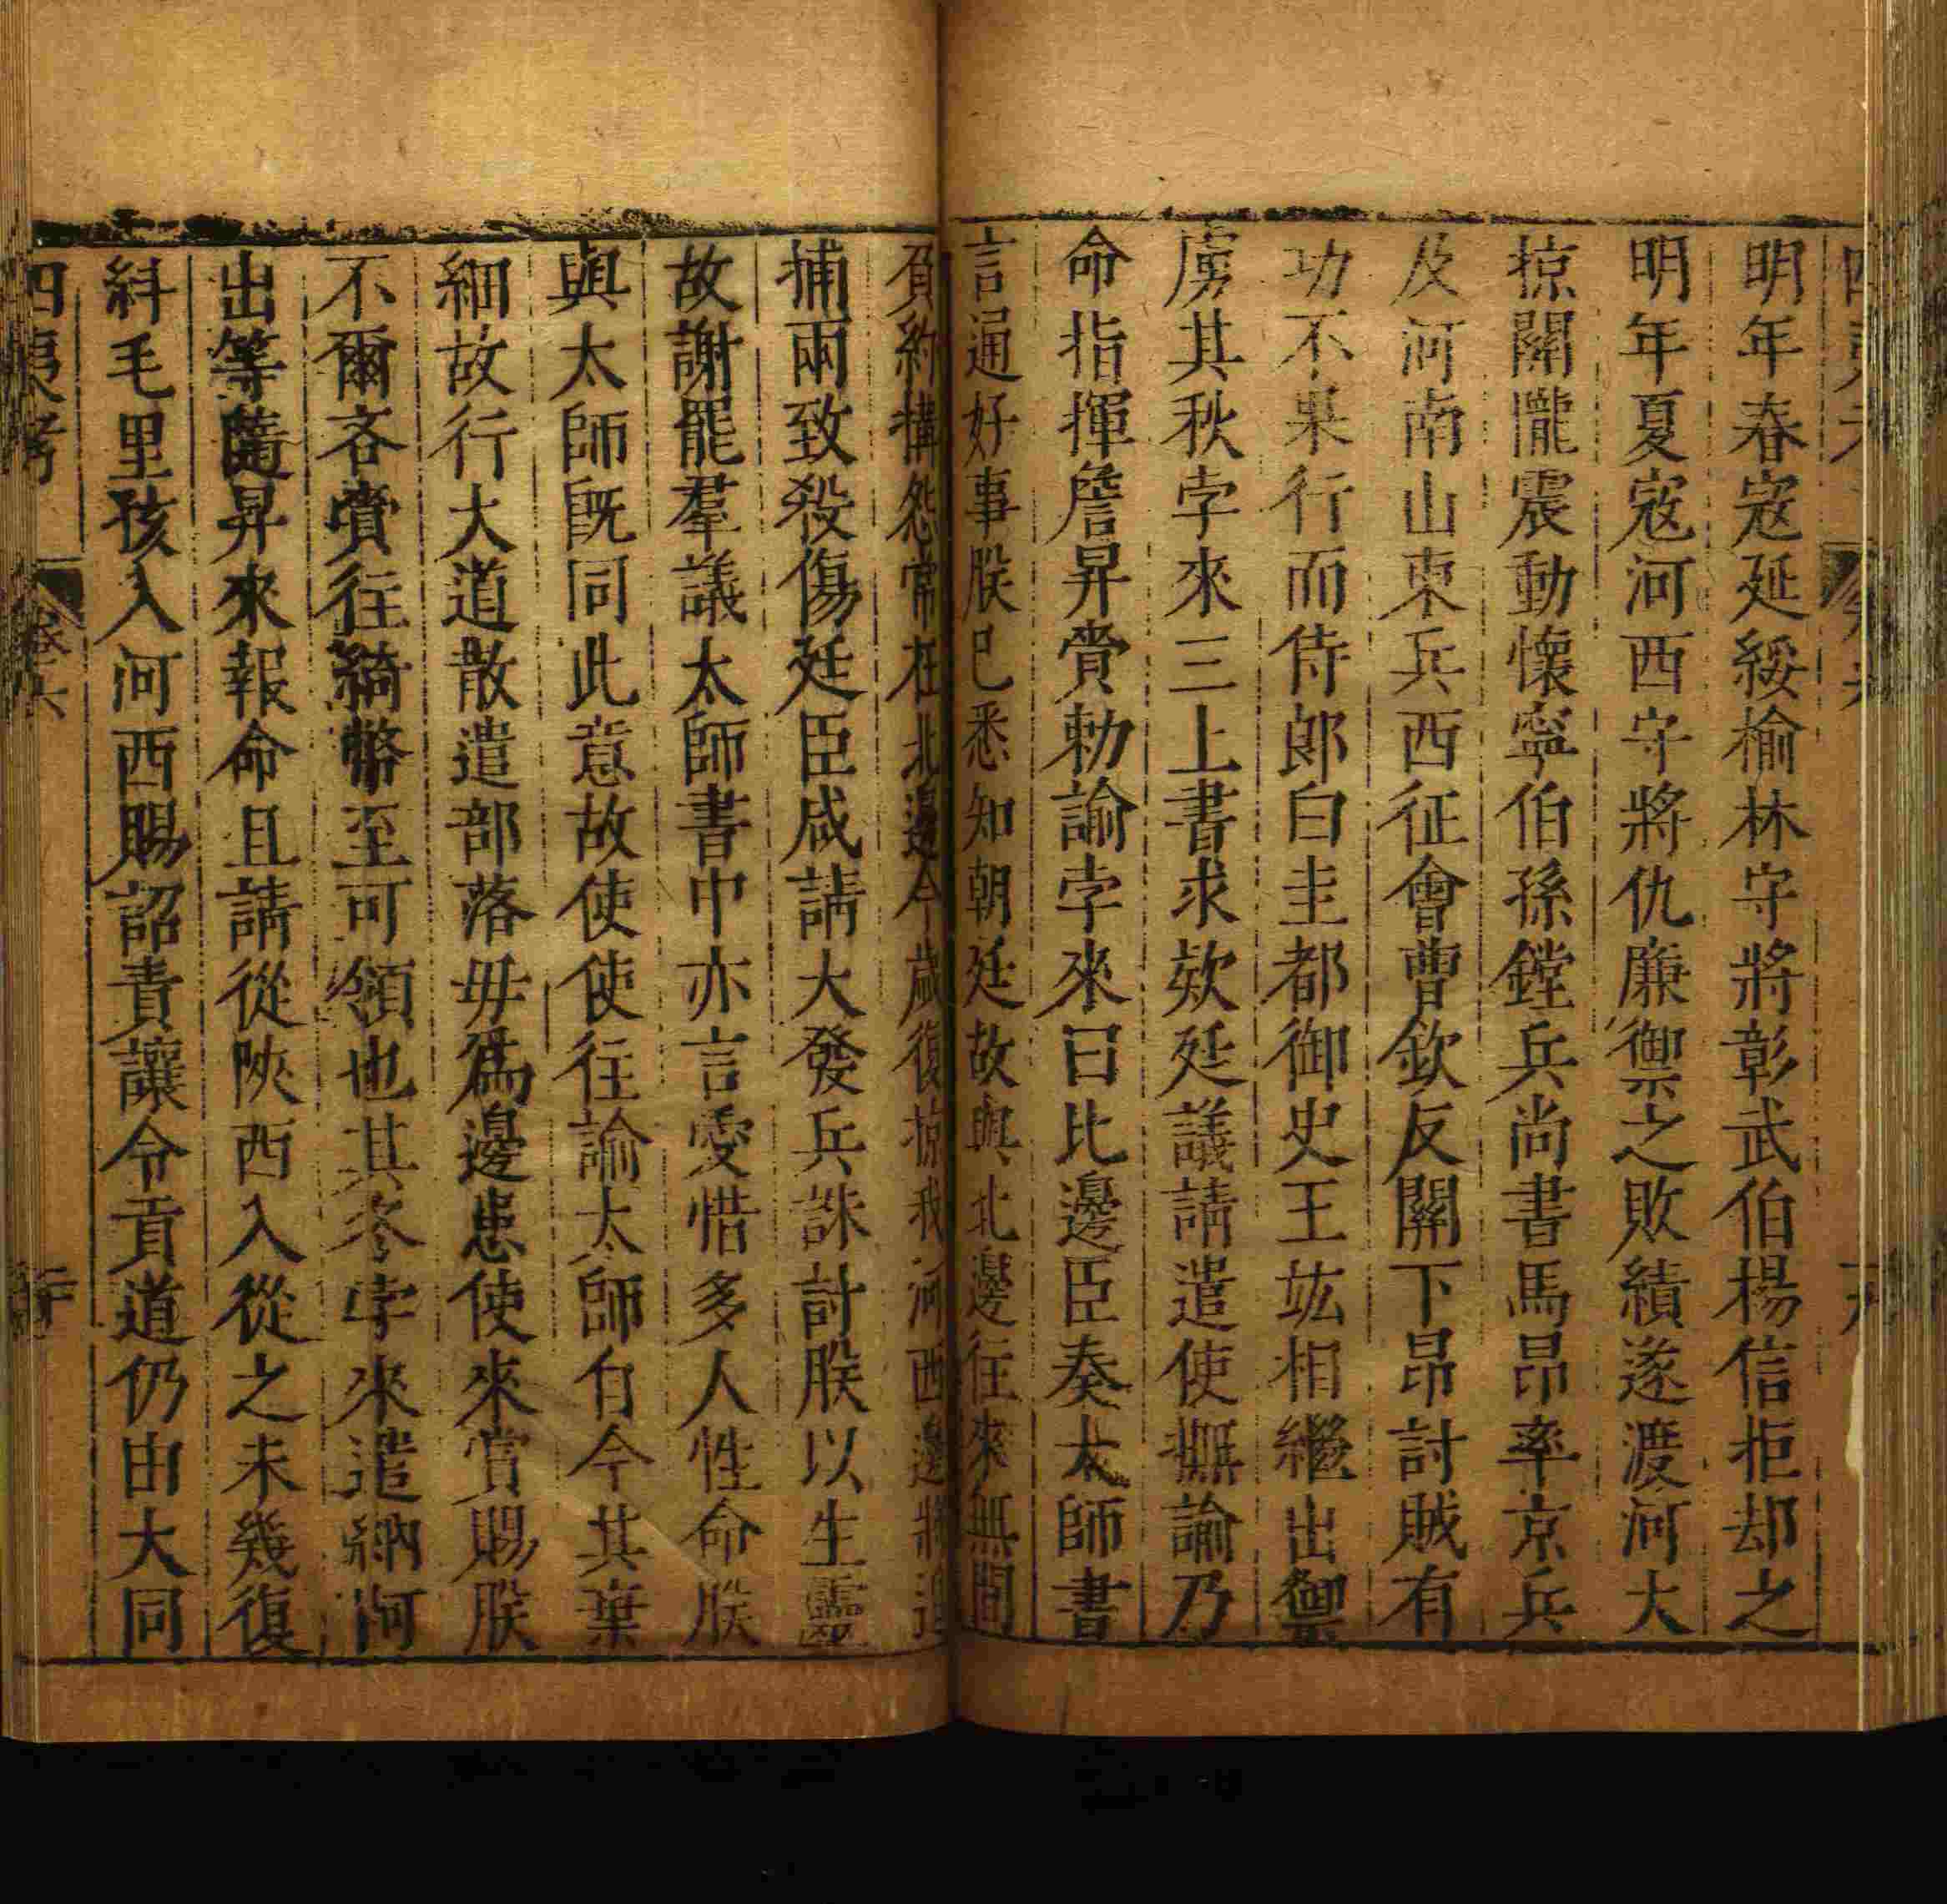 明年春寇延綏榆林守將彰武伯楊信拒却之
明年夏寇河西守將仇廉禦之敗績遂渡河大
掠關隴震動懷寧伯孫鏜兵尚書馬昂率京兵
及河南山東兵西征會曹欽反關下昂討賊有
功不果行而侍郎白圭都御史王竑相繼出禦
虜其秋孛來三上書求欵延議請遣使撫諭乃
命指揮詹昇賫勅諭孛來曰比邊臣奏太師書
言通好事朕已悉知朝廷故與北邊往來無間
負約搆怨常在北邊今歲復掠我河西邊將追
捕兩致殺傷廷臣咸請大發兵誅討朕以生靈
故謝罷羣議太師書中亦言愛惜多人性命朕
與太師旣同此意故使使往諭太師自今其棄
細故行大道散遣部落毋爲邊患使來賞賜朕
不爾吝賫往綺幣至可領也其冬孛來遣納阿
出等隨昇來報命且請從陝西入從之未幾復
糾毛里孩入河西賜詔責讓令貢道仍由大同
四夷考 卷六